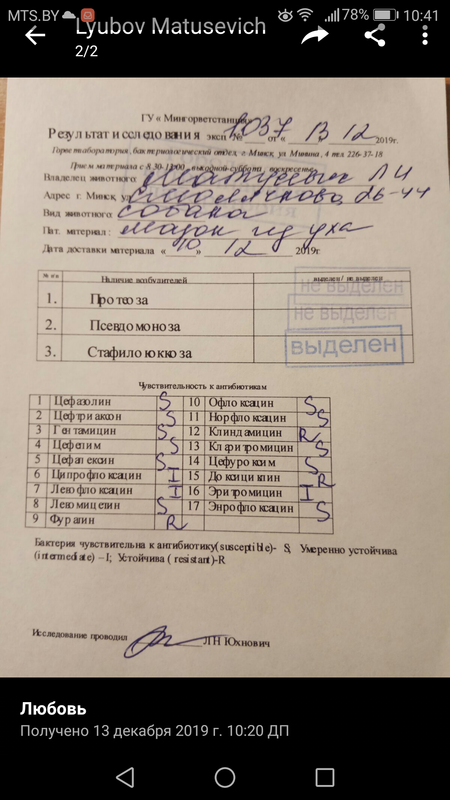 MTS.BY 78% 10:41
Lyubov Matusevich
2/2
ГУ « Мингорветстанция»
Результат исследования эксп № 1037 от « 13 12 2019г.
Горветлаборатория, бактериологический отдел, г. Минск, ул Минина, 4 тел 226-37-18
Прием материала с 8.30-11.00, выходной-суббота, воскресенье
Владелец животного Л И
Адрес г. Минск, ул Смолячкова 26-44
Вид животного собака
Пат. материал: мазок из уха
Дата доставки материала «10» 12 2019г
№ п\п Наличие возбудителей выделен/ не выделен
1. Протеоза не выделен
2. Псевдомоноза не выделен
3. Стафилококкоза выделен
Чувствительность к антибиотикам
1 Цефазолин S 10 Офлоксацин S
2 Цефтриаксон S 11 Норфлоксацин S
3 Гентамицин S 12 Клиндамицин R
4 Цефепим S 13 Кларитромицин S
5 Цефалексин S 14 Цефуроксим S
6 Ципрофлоксацин I 15 Доксициклин R
7 Левофлоксацин I 16 Эритромицин I
8 Левомицетин S 17 Энрофлоксацин S
9 Фурагин R
Бактерия чувствительна к антибиотику(susceptible)- S, Умеренно устойчива
(intermediate) – I; Устойчива ( resistant)-R
Исследование проводил Л Н Юхнович
Любовь
Получено 13 декабря 2019 г. 10:20 ДП